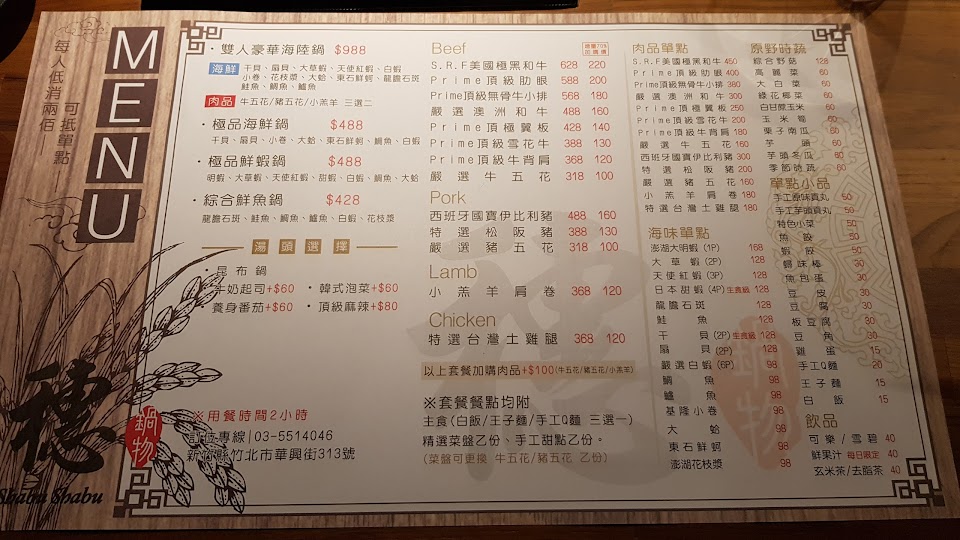 MENU
每人低消兩佰
可抵單點
穗
鍋物
Shabu Shabu
・雙人豪華海陸鍋 $988
海鮮 干貝、扇貝、大草蝦、天使紅蝦、白蝦
小卷、花枝漿、大蛤、東石鮮蚵、龍膽石斑
鮭魚、鯛魚、鱸魚
肉品 牛五花/豬五花/小羔羊 三選二
・極品海鮮鍋 $488
干貝、扇貝、小卷、大蛤、東石鮮蚵、鯛魚、白蝦
・極品鮮蝦鍋 $488
明蝦、大草蝦、天使紅蝦、甜蝦、白蝦、鯛魚、大蛤
・綜合鮮魚鍋 $428
龍膽石斑、鮭魚、鯛魚、鱸魚、白蝦、花枝漿
湯頭選擇
・昆布鍋
・牛奶起司+$60 ・韓式泡菜+$60
・養身番茄+$60 ・頂級麻辣+$80
※用餐時間2小時
訂位專線|03-5514046
新竹縣竹北市華興街313號
Beef
S.R.F美國極黑和牛 628 220
Prime頂級肋眼 588 200
Prime頂級無骨牛小排 568 180
嚴選澳洲和牛 488 160
Prime頂極翼板 428 140
Prime頂級雪花牛 388 130
Prime頂級牛肩 368 120
嚴選牛五花 318 100
Pork
西班牙國寶伊比利豬 488 160
特選松阪豬 388 130
嚴選豬五花 318 100
Lamb
小羔羊肩卷 368 120
Chicken
特選台灣土雞腿 368 120
以上套餐加購肉品+$100(牛五花/豬五花/小羔羊)
※套餐餐點均附
主食(白飯/王子麵/手工Q麵 三選一)
精選菜盤乙份、手工甜點乙份。
(菜盤可更換 牛五花/豬五花 乙份)
肉品單點
S.R.F美國極黑和牛 450
Prime頂級肋眼 400
Prime頂級無骨牛小排 380
嚴選澳洲和牛 300
Prime頂極翼板 250
Prime頂級雪花牛 200
Prime頂級牛背肩 180
嚴選牛五花 160
西班牙國寶伊比利豬 300
特選松阪豬 200
嚴選豬五花 160
小羔羊肩卷 180
特選台灣土雞腿 180
海味單點
澎湖大明蝦 (1P) 168
大草蝦 (2P) 128
天使紅蝦 (3P) 128
日本甜蝦 (4P) 生食級 128
龍膽石斑 128
鮭魚 128
干貝 (2P) 生食級 128
扇貝 (2P) 128
嚴選白蝦 (6P) 98
鯛魚 98
鱸魚 98
基隆小卷 98
大蛤 98
東石鮮蚵 98
澎湖花枝漿 98
原野時蔬
綜合野菇 128
高麗菜 60
大白菜 60
綠花椰菜 60
白甘蔗玉米 60
玉米筍 60
栗子南瓜 60
芋頭 60
芋頭冬瓜 60
季節時蔬 60
單點小品
手工原味貢丸 50
手工芋頭貢丸 50
特色小菜 50
魚餃 50
蝦餃 50
蟳味棒 30
魚包蛋 30
豆皮 30
豆腐 30
板豆腐 30
豆角 30
雞蛋 15
手工Q麵 20
王子麵 15
白飯 15
飲品
可樂/雪碧 40
鮮果汁 每日限定 40
玄米茶/去脂茶 40